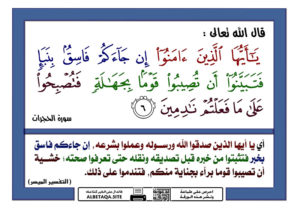 قال الله تعالى :
يَـٰٓأَيُّهَا ٱلَّذِينَ ءَامَنُوٓا۟ إِن جَآءَكُمْ فَاسِقٌۢ بِنَبَإٍ
فَتَبَيَّنُوٓا۟ أَن تُصِيبُوا۟ قَوْمًۢا بِجَهَـٰلَةٍ فَتُصْبِحُوا۟
عَلَىٰ مَا فَعَلْتُمْ نَـٰدِمِينَ ٦
سورة الحجرات
أي يا أيها الذين صدقوا الله ورسوله وعملوا بشرعه، إن جاءكم فاسق
بخبر فتثبتوا من خبره قبل تصديقه ونقله حتى تعرفوا صحته؛ خشية
أن تصيبوا قوما برآء بجناية منكم، فتندموا على ذلك.
(التفسير الميسر)
ALBETAQA.SITE